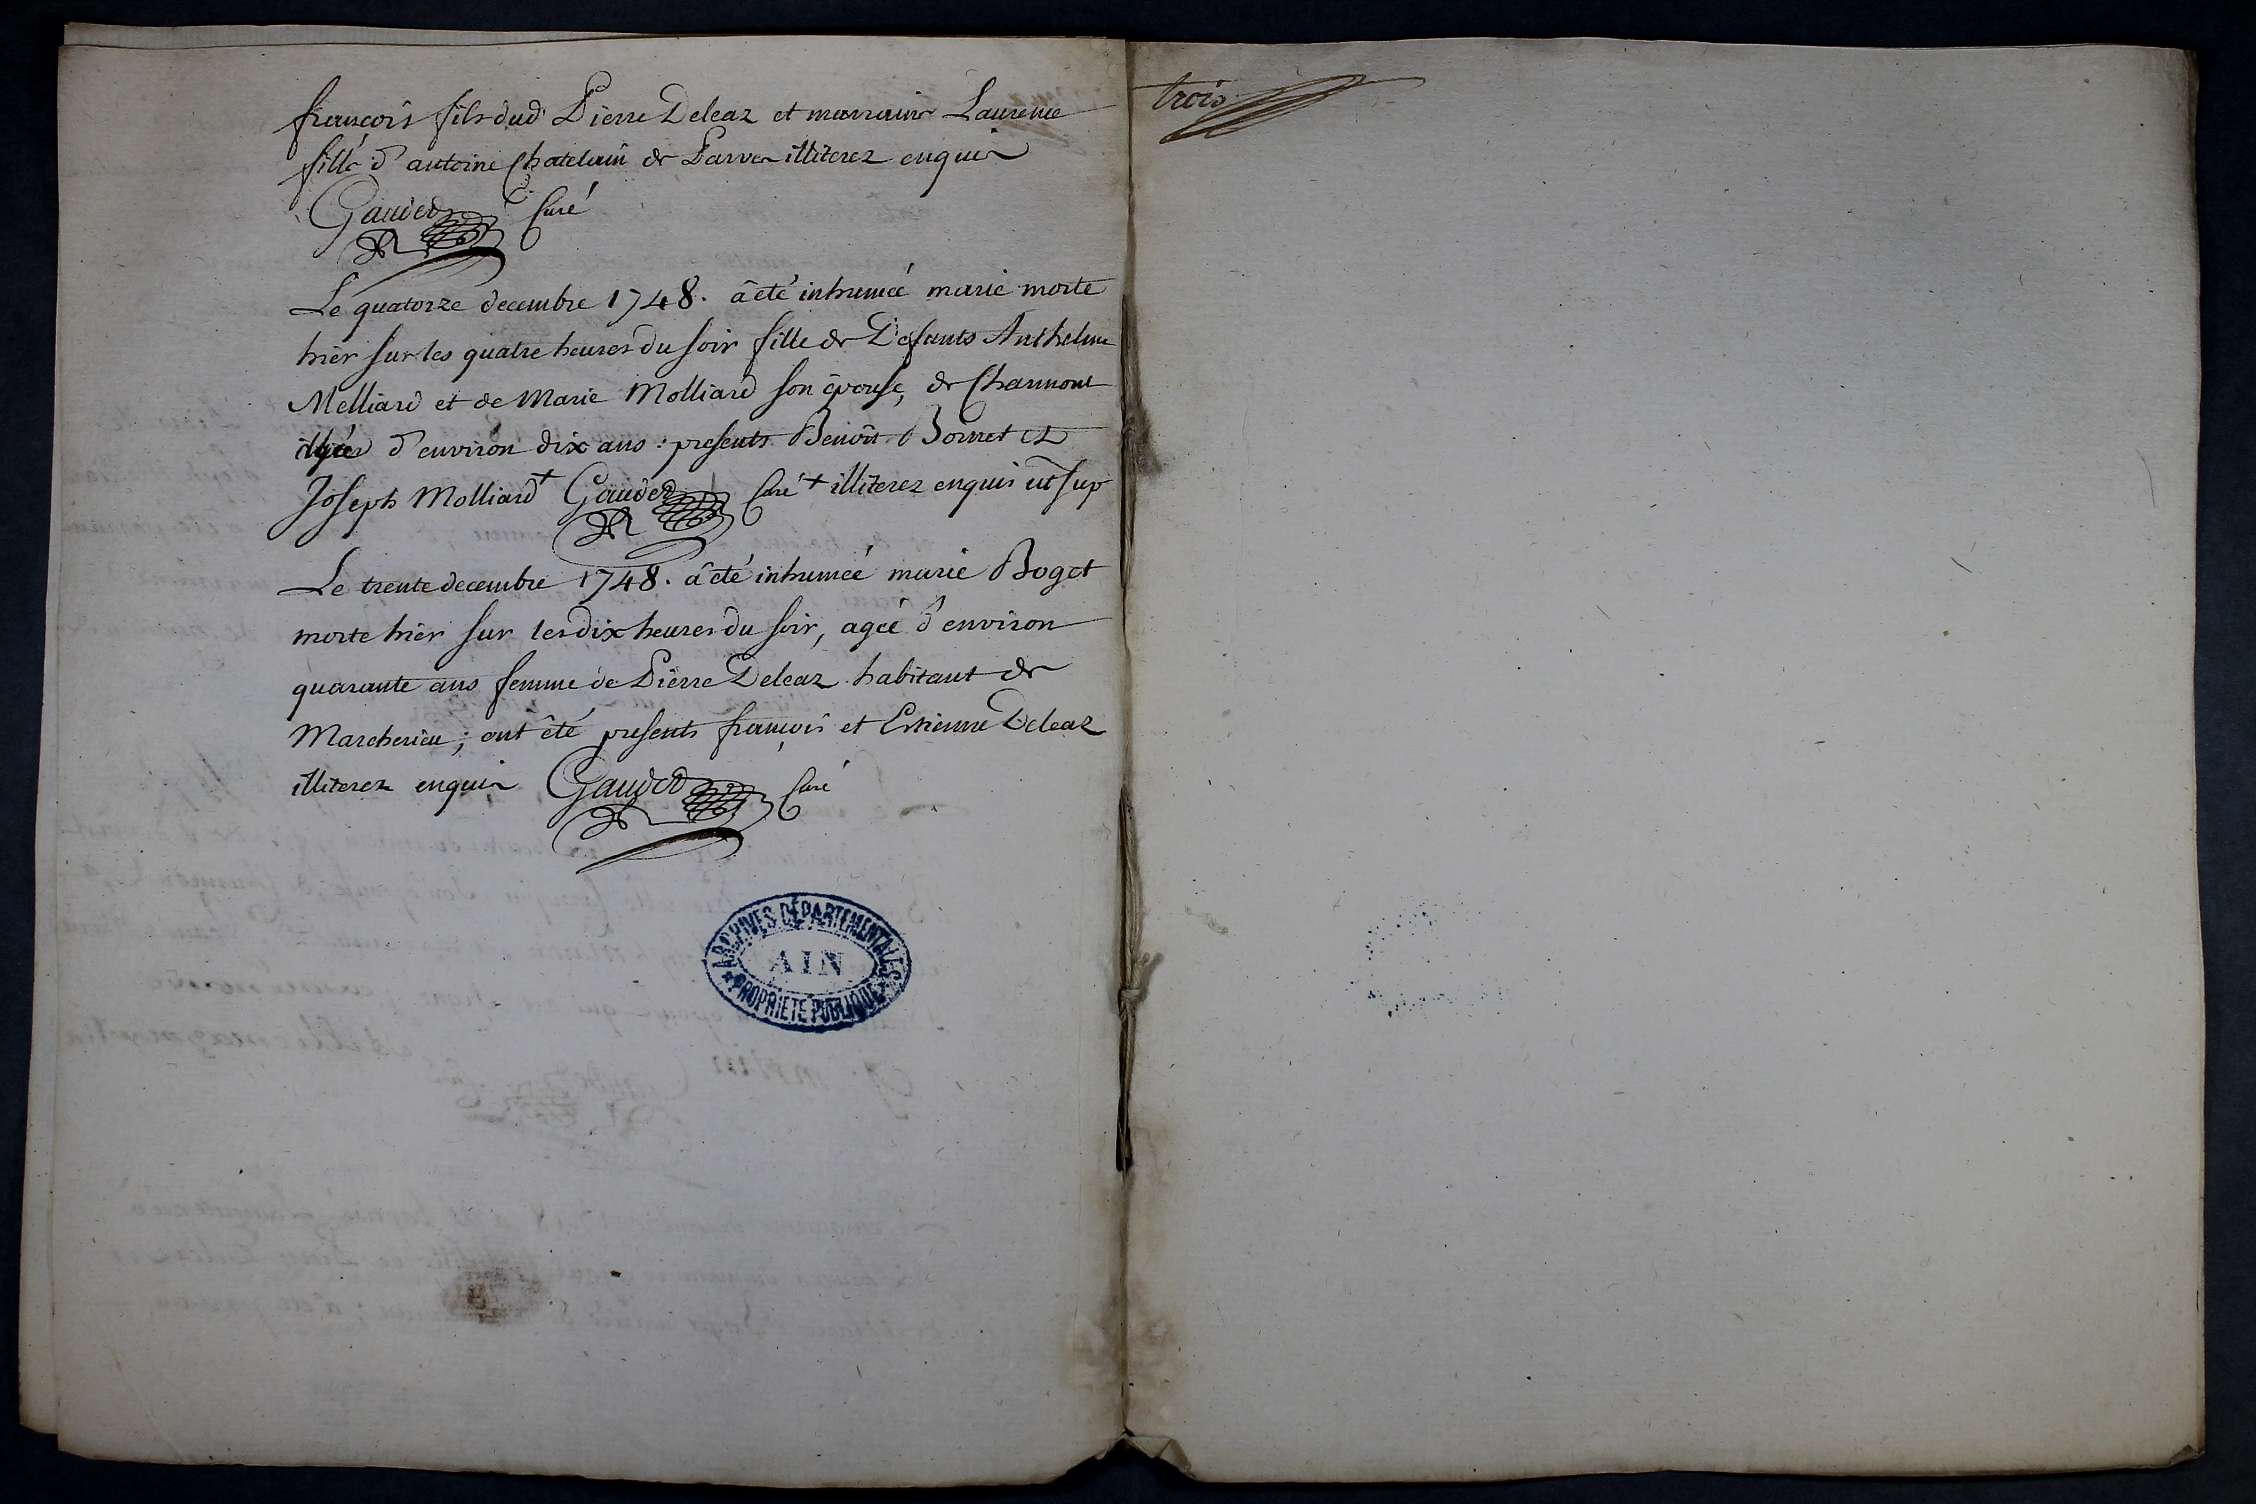 françois fils dud' Pierre Deleaz et marraine Laurence
fille d'antoine Chatelain de Parves illiterez enquis
Gaudet Curé
Le quatorze decembre 1748. â été inhumée marie morte
hier sur les quatre heures du soir fille de Defunts Anthelme
Melliard et de Marie Molliard son épouse, de Charmont
agée d'environ dix ans : presents Benoît Bornet et
Joseph Molliard + Gaudet Curé + illiterez enquis ut sup
Le trente decembre 1748. â été inhumée marie Boget
morte hier sur les dix heures du soir, agée d'environ
quarante ans femme de Pierre Deleaz habitant de
Marcherieu ; ont été presents françois et Estienne Deleaz
illiterez enquis Gaudet Curé
ARCHIVES DÉPARTEMENTALES
AIN
PROPRIETE PUBLIQUE
trois